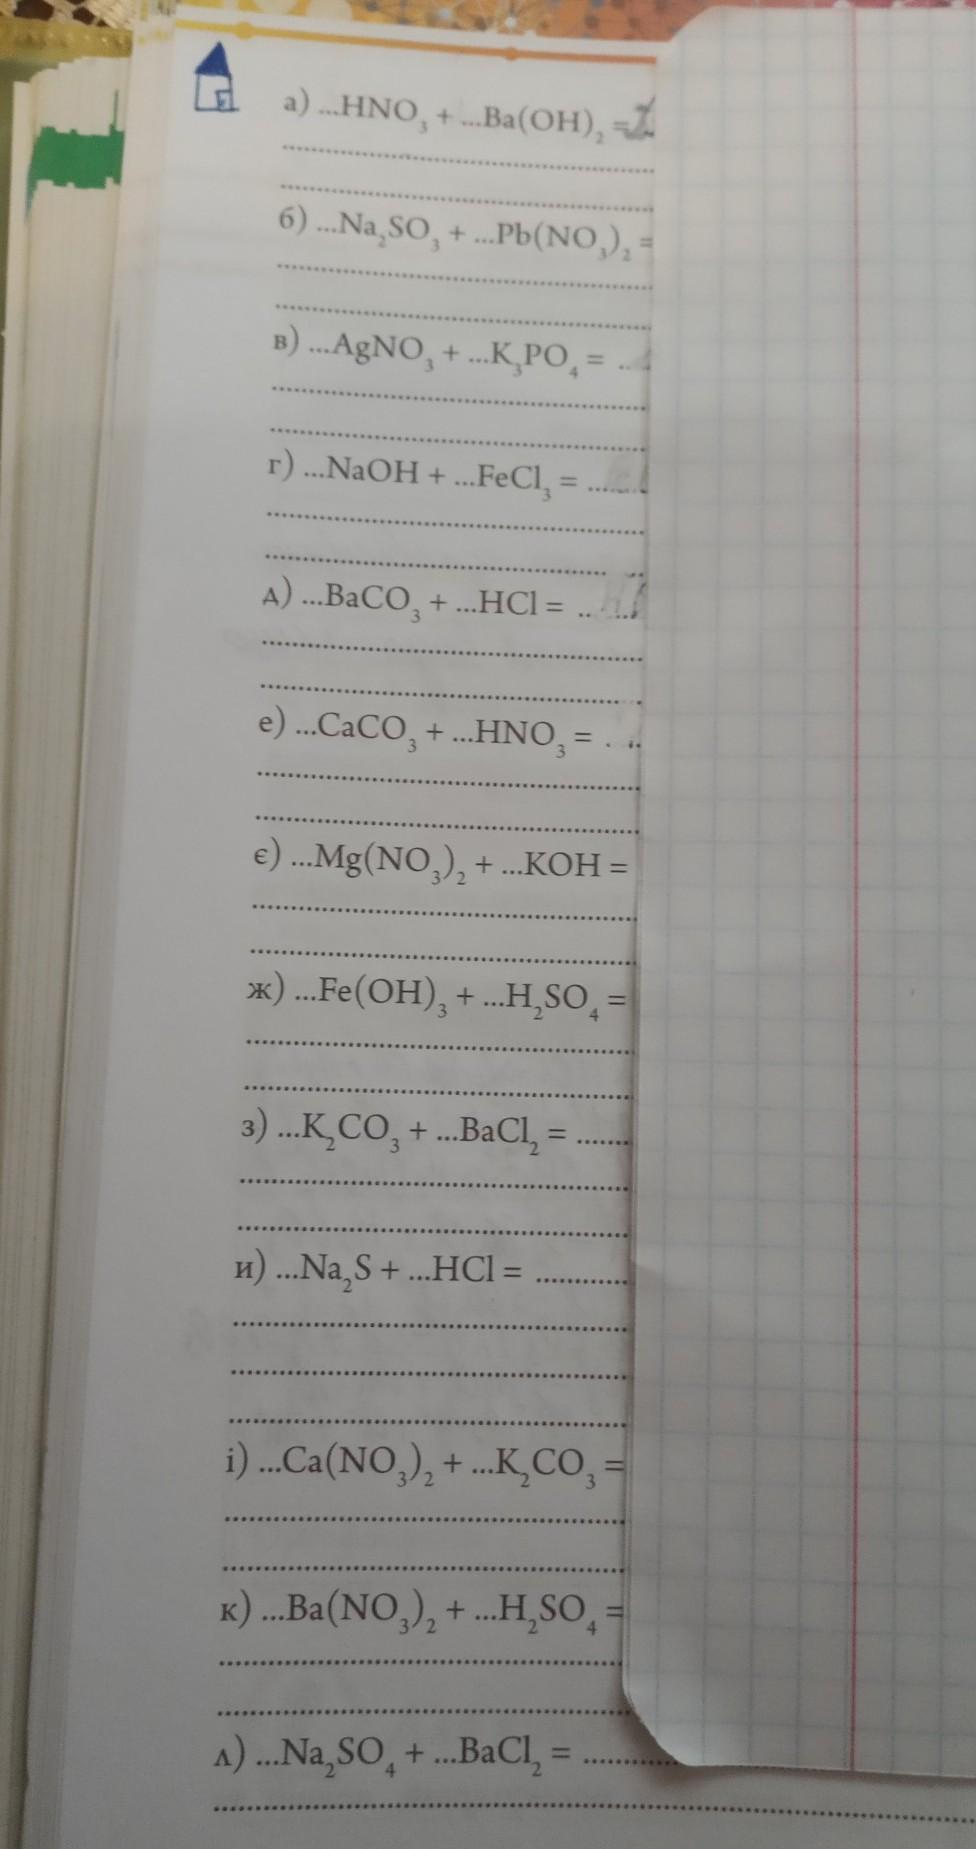 а) ...HNO₃ + ...Ba(OH)₂ =
б) ...Na₂SO₃ + ...Pb(NO₃)₂ =
в) ...AgNO₃ + ...K₃PO₄ = ..
г) ...NaOH + ...FeCl₃ = ......
д) ...BaCO₃ + ...HCl = .. ...
е) ...CaCO₃ + ...HNO₃ = . ..
є) ...Mg(NO₃)₂ + ...KOH =
ж) ...Fe(OH)₃ + ...H₂SO₄ =
з) ...K₂CO₃ + ...BaCl₂ = .......
и) ...Na₂S + ...HCl = ............
і) ...Ca(NO₃)₂ + ...K₂CO₃ =
к) ...Ba(NO₃)₂ + ...H₂SO₄ =
л) ...Na₂SO₄ + ...BaCl₂ = ............